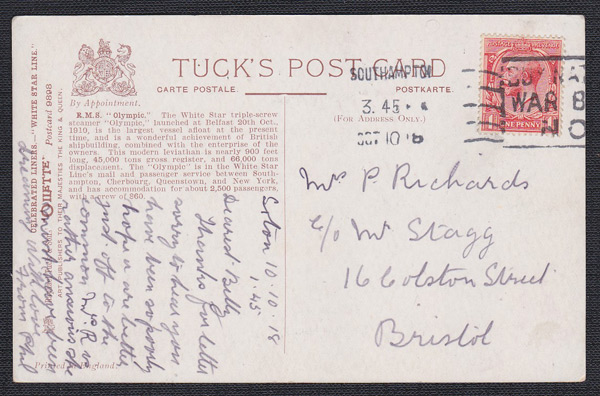 TUCK'S POST CARD
CARTE POSTALE.
POSTKARTE.
(FOR ADDRESS ONLY.)
By Appointment.
R.M.S. "Olympic." The White Star triple-screw
steamer "Olympic," launched at Belfast 20th Oct.,
1910, is the largest vessel afloat at the present
time, and is a wonderful achievement of British
shipbuilding, combined with the enterprise of the
owners. This modern leviathan is nearly 900 feet
long, 45,000 tons gross register, and 66,000 tons
displacement. The "Olympic" is in the White Star
Line's mail and passenger service between South-
ampton, Cherbourg, Queenstown, and New York,
and has accommodation for about 2,500 passengers,
with a crew of 860.
CELEBRATED LINERS.—"WHITE STAR LINE."
"OILETTE" Postcard 9898
ART PUBLISHERS TO THEIR MAJESTIES THE KING & QUEEN.
Printed in England.
SOUTHAMPTON
3.45
OCT 10 18
WAR B
NO
ONE PENNY
Mrs P. Richards
c/o Mr Stagg
16 Colston Street
Bristol
Soton 10.10.18
1.45
Dearest Betty
Thanks for letter
sorry to hear you
have been so poorly
hope u are better
just off to the
common Mrs R is